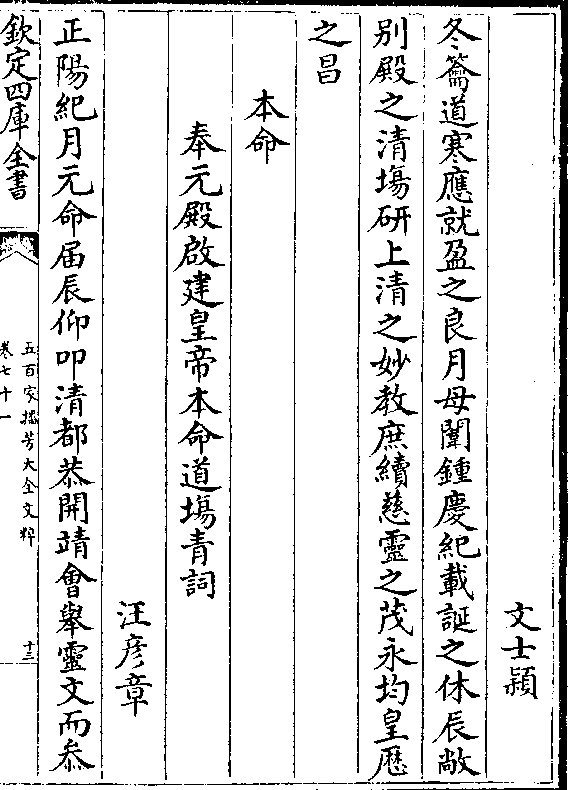 文士潁
冬籥道寒應就盈之良月母闈鍾慶紀載誕之休辰敞
别殿之清塲研上清之妙教庶續慈靈之茂永均皇厯
之昌
本命
奉元殿啟建皇帝本命道塲青詞
汪彦章
正陽紀月元命届辰仰叩清都恭開靖會舉靈文而叅
欽定四庫全書
五百家播芳大全文粹
卷七十一
十三